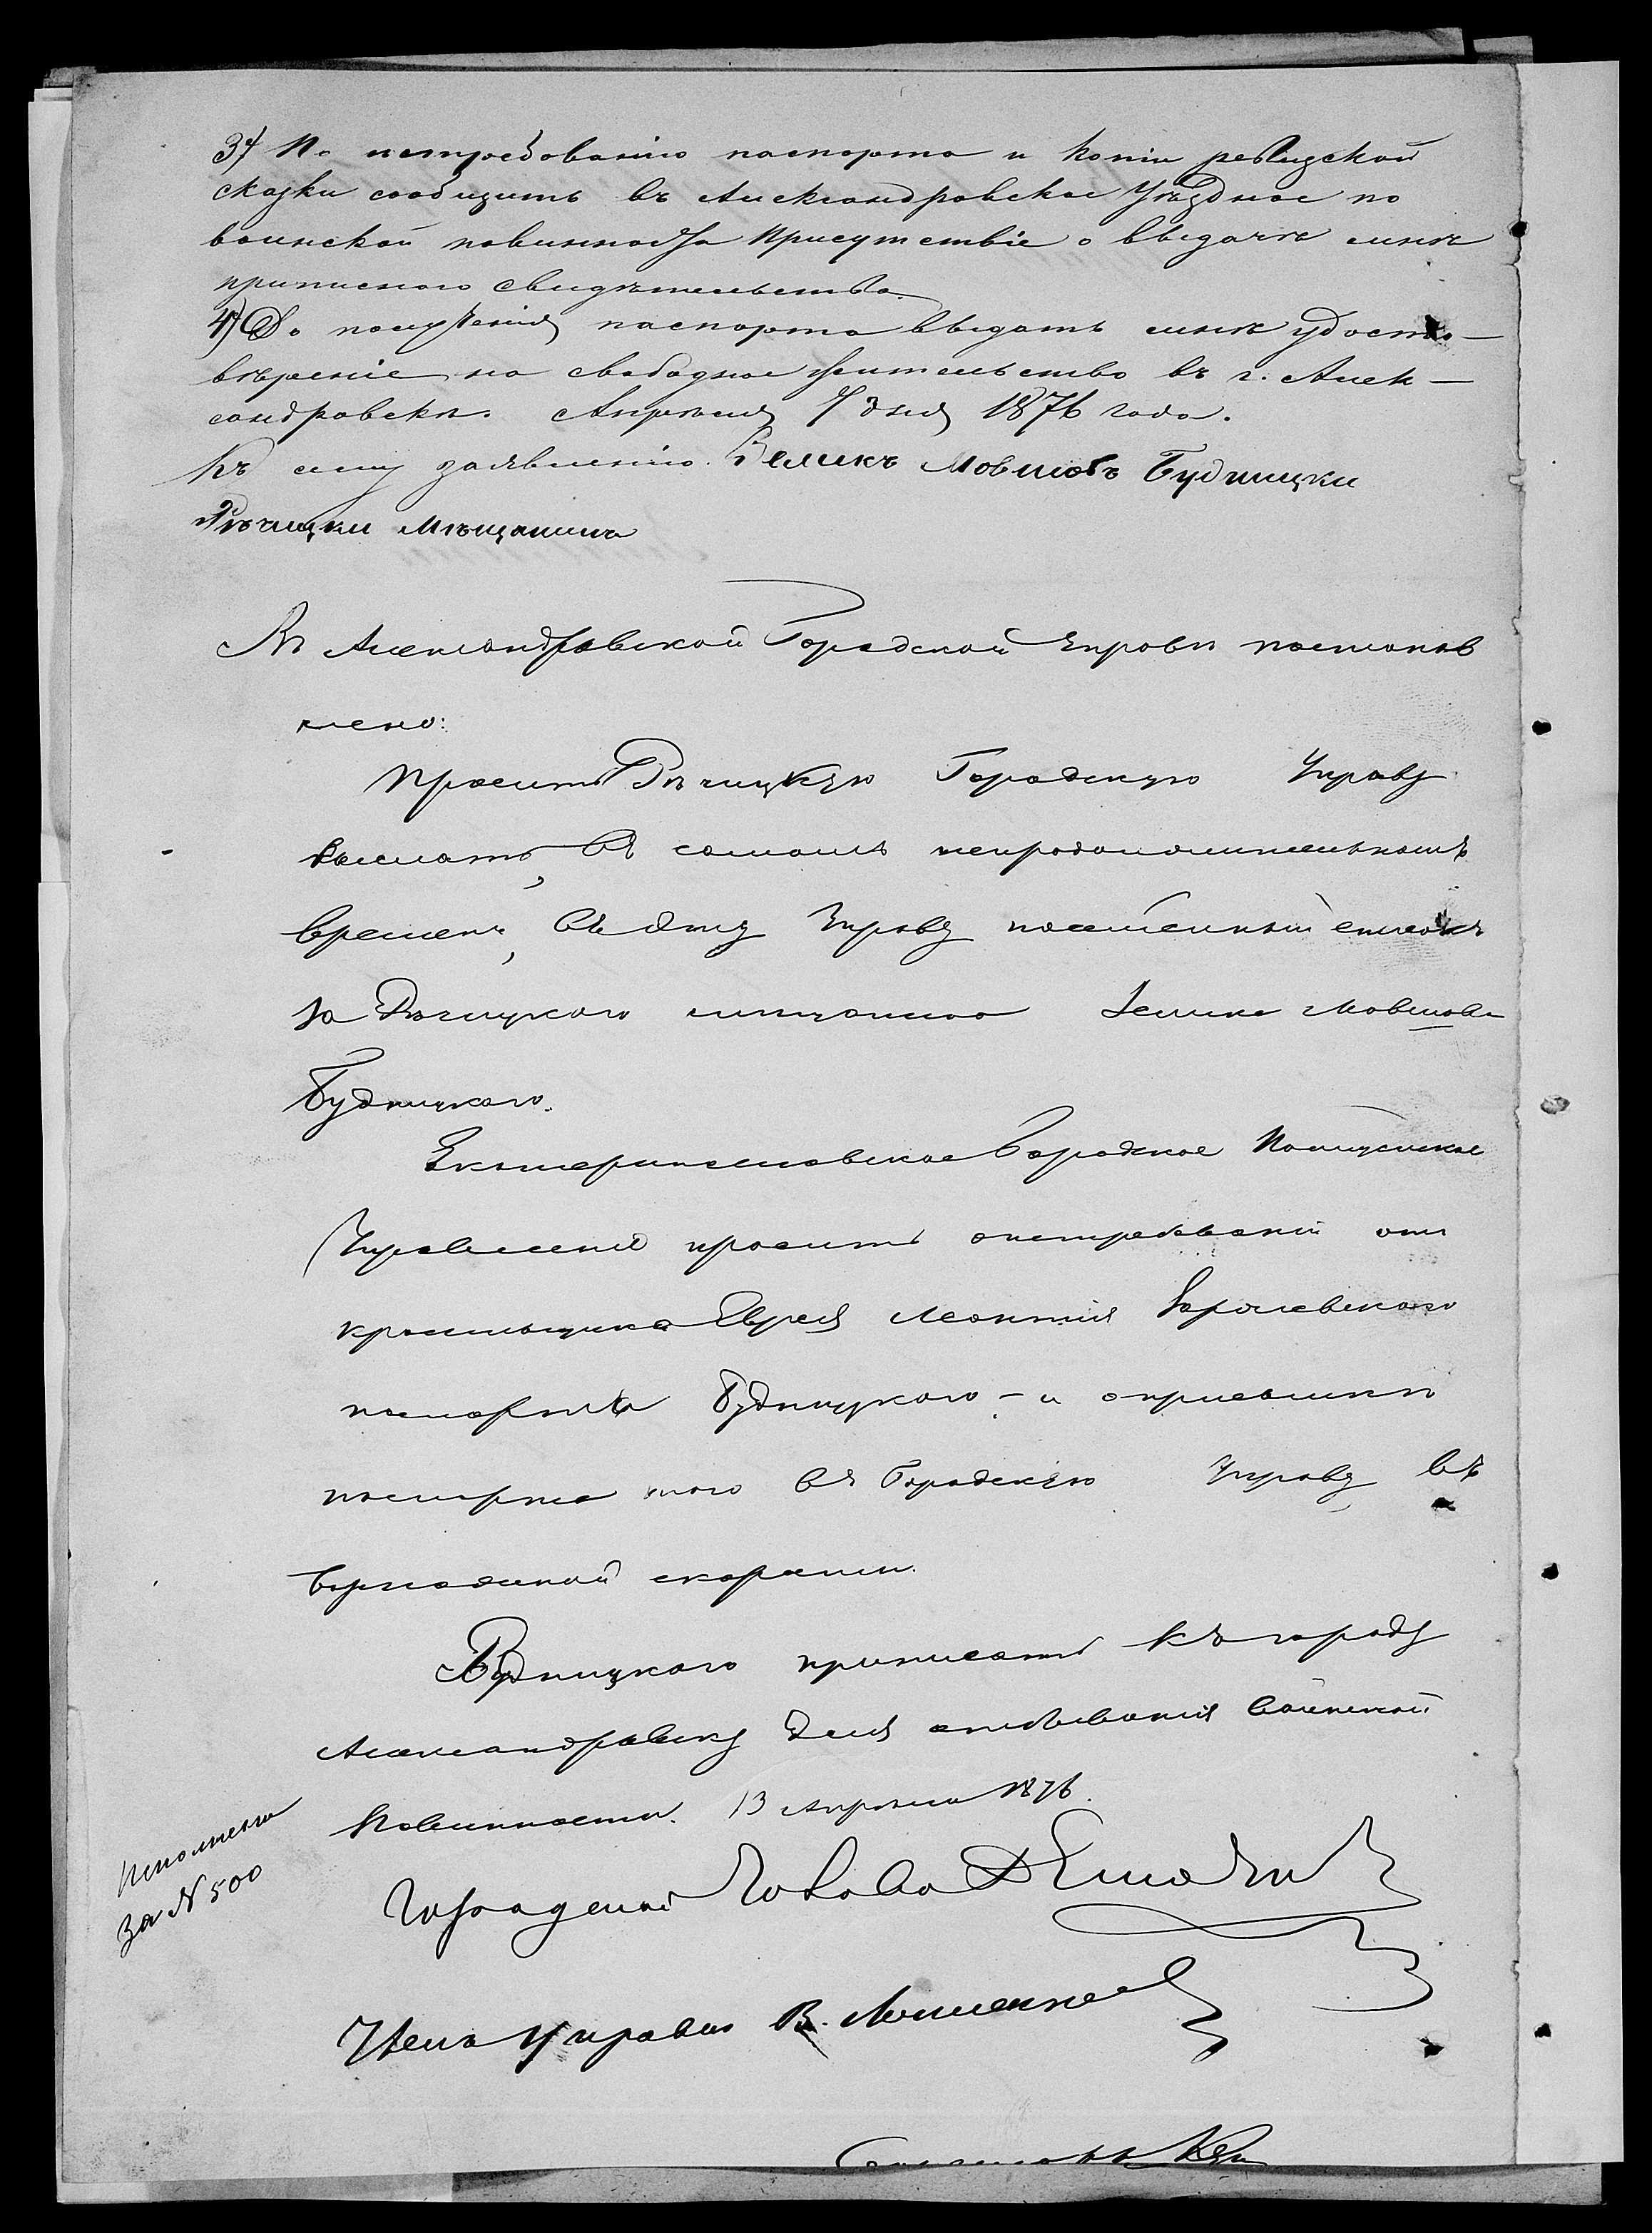 3) По истребованію паспорта и копіи ревизской
сказки сообщить въ Александровское Уѣздное по
воинской повинности Присутствіе о выдачѣ мнѣ
приписного свидѣтельства.
4) До полученія паспорта выдать мнѣ удосто-
вѣреніе на свободное жительство въ г. Алек-
сандровскѣ. Апрѣля 7 дня 1876 года.
Къ сему заявленію Зеликъ Мовшовъ Будницки
Рѣчицки Мѣщанинъ
Въ Александровской Городской Управѣ постанов
лено:
Просить Рѣчицкую Городскую Управу
выслать, въ самомъ непродолжительномъ
времени, въ эту Управу посемейный списокъ
Рѣчицкого мѣщанина Зелика Мовшова
Будницкого.
Екатеринославское Городское Полицейское
Управленіе просить отъ
красильщика Еврея Леонтія
паспорта Будницкого - и
паспорта того въ Городскую Управу въ
скорости.
Будницкого приписать къ городу
Александровску для отбыванія воинской
повинности. 13 Апрѣля 1876.
Городской Голова
Членъ Управы В.
Исполнено
За N 500